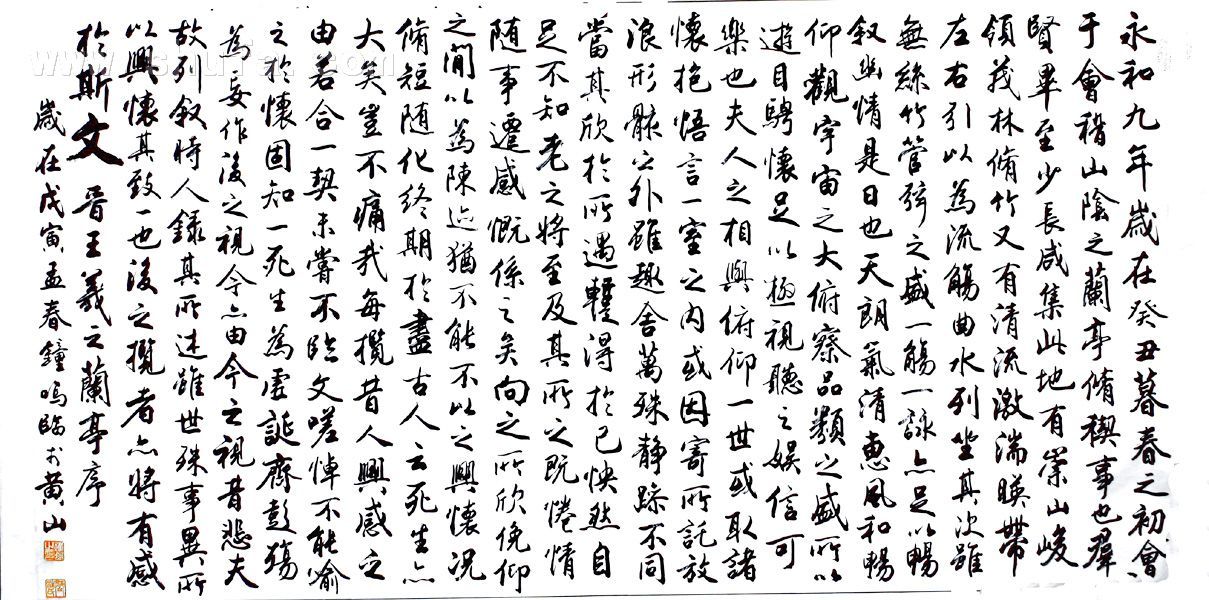 永和九年歲在癸丑暮春之初會
于會稽山陰之蘭亭脩稧事也羣
賢畢至少長咸集此地有崇山峻
領茂林脩竹又有清流激湍暎帶
左右引以為流觴曲水列坐其次雖
無絲竹管弦之盛一觴一詠亦足以暢
叙幽情是日也天朗氣清惠風和暢
仰觀宇宙之大俯察品類之盛所以
遊目騁懷足以極視聽之娛信可
樂也夫人之相與俯仰一世或取諸
懷抱悟言一室之內或因寄所託放
浪形骸之外雖趣舍萬殊静躁不同
當其欣於所遇蹔得於己怏然自
足不知老之將至及其所之既惓情
随事遷感慨係之矣向之所欣俛仰
之閒以為陳迹猶不能不以之興懷況
脩短随化終期於盡古人云死生亦
大矣豈不痛哉每攬昔人興感之
由若合一契未嘗不臨文嗟悼不能喻
之於懷固知一死生為虛誕齊彭殤
為妄作後之視今亦由今之視昔悲夫
故列叙時人録其所述雖世殊事異所
以興懷其致一也後之攬者亦將有感
於斯文 晉王羲之蘭亭序
歲在戊寅孟春鐘鳴臨于黄山